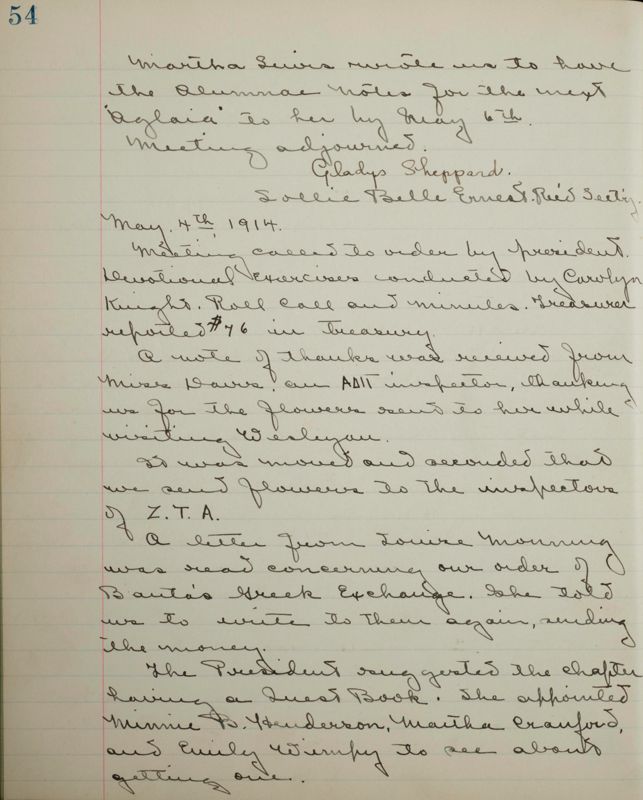 54
Martha Lewis wrote us to have
the Alumnae Notes for the next
"Aglaia" to her by May 6th.
Meeting adjourned.
Gladys Sheppard.
Lollie Belle Ernest. Rec'd Sect'y.
May. 4th, 1914.
Meeting called to order by president.
Devotional Exercises conducted by Carolyn
Knight. Roll Call and minutes. Treasurer
reported $76 in treasury.
A note of thanks was received from
Miss Davis, an ΑΔΠ inspector, thanking
us for the flowers sent to her while
visiting Wesleyan.
It was moved and seconded that
we send flowers to the inspectors
of Z.T.A.
A letter from Louise Monning
was read concerning our order of
Banta's Greek Exchange. She told
us to write to them again, sending
the money.
The President suggested the chapter
having a Guest Book. She appointed
Minnie B. Henderson, Martha Cranford,
and Emily Wimpy to see about
getting one.